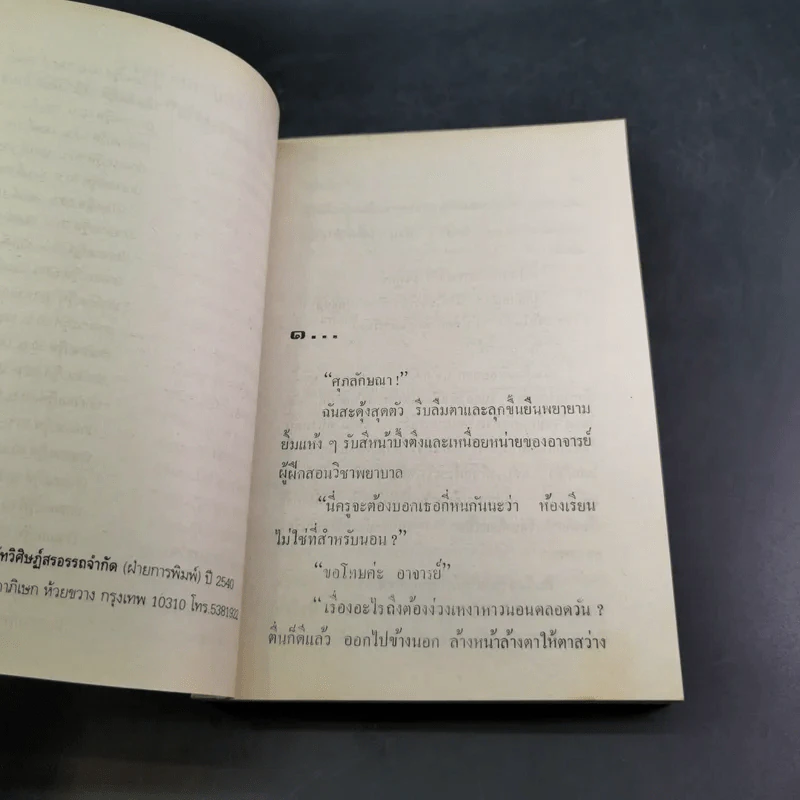 ทวิศิษฏ์สรอรรถจำกัด (ฝ่ายการพิมพ์) ปี 2540
ภิเษก ห้วยขวาง กรุงเทพ 10310 โทร.5381922
๑...
“ศุภลักษณา!”
ฉันสะดุ้งสุดตัว รีบลืมตาและลุกขึ้นยืนพยายาม
ยิ้มแห้ง ๆ รับสีหน้าบึ้งตึงและเหนื่อยหน่ายของอาจารย์
ผู้ฝึกสอนวิชาพยาบาล
“นี่ครูจะต้องบอกเธอกี่หนกันนะว่า ห้องเรียน
ไม่ใช่ที่สำหรับนอน?”
“ขอโทษค่ะ อาจารย์”
“เรื่องอะไรถึงต้องง่วงเหงาหาวนอนตลอดวัน?
ตื่นก็ดีแล้ว ออกไปข้างนอก ล้างหน้าล้างตาให้ตาสว่าง